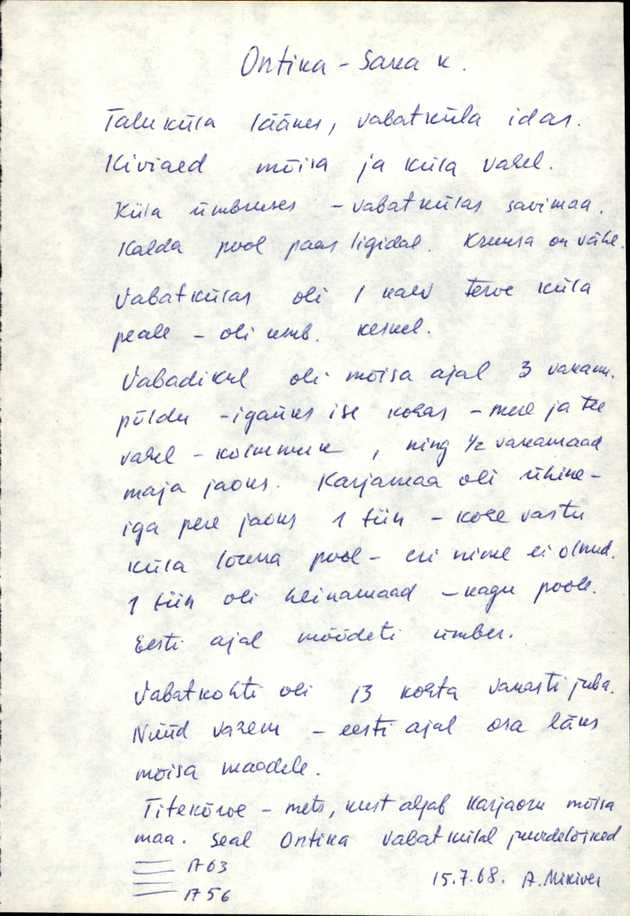 Ontika - Saka k.
Taluküla läänes, vabatküla idas.
Kiviaed mõisa ja küla vahel.
Küla ümbruses - vabatkülas savimaa.
Kalda pool paas ligidal. Kruusa on vähe.
Vabatkülas oli 1 kaev terve küla
peale - oli umb. keskel.
Vabadikul oli mõisa ajal 3 vakam.
põldu - igaühes ise kohas - mere ja tee
vahel - kolmnurk, ning 1/2 vakamaad
maja jaoks. Karjamaa oli ühine -
iga pere jaoks 1 tiin - kohe vastu
küla lõuna pool - eri nime ei olnud.
1 tiin oli heinamaad - kagu poole.
Eesti ajal mõõdeti ümber.
Vabatkohti oli 13 kohta vanasti juba.
Nüüd vähem - eesti ajal osa läks
mõisa maadele.
Titekõrve - mets, kust algab Karjaoru mõisa
maa. Seal Ontika vabatkülal juurdelõiked
1763
1756
15.7.68. A. Mikiver